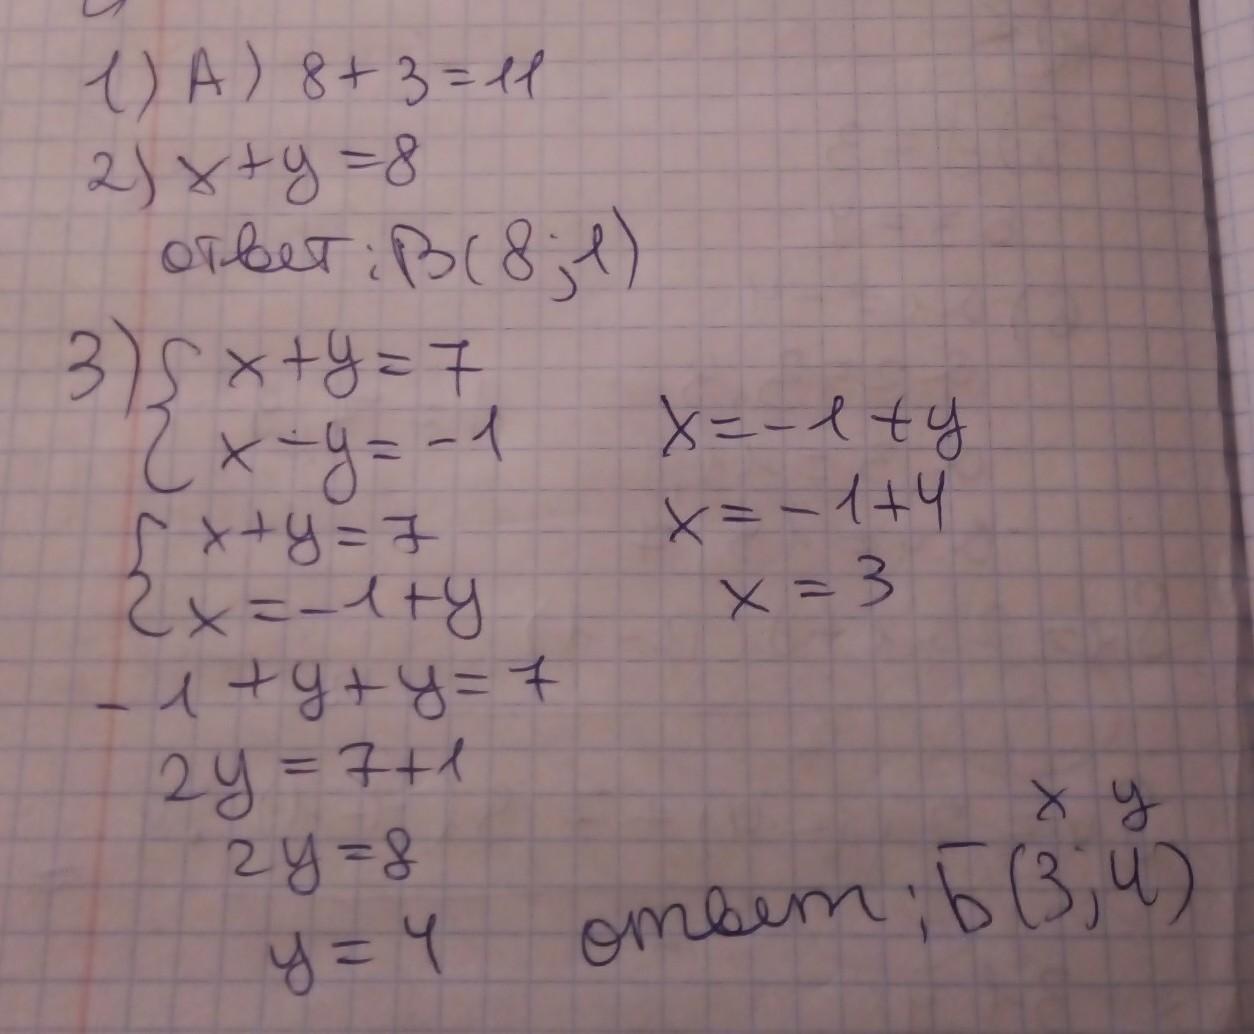 1) А) 8+3=11
2) x+y=8
ответ: В(8;1)
3) { x+y=7
x-y=-1
{ x+y=7
x=-1+y
-1+y+y=7
2y=7+1
2y=8
y=4
x=-1+y
x=-1+4
x=3
x y
ответ: Б(3;4)